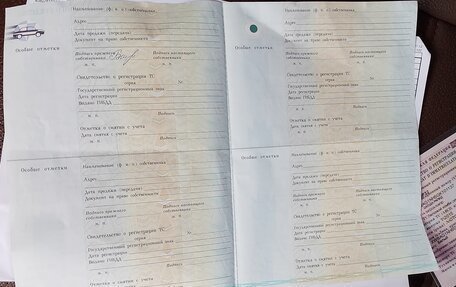 Особые отметки
Наименование (ф. и. о.) собственника
Адрес
Дата продажи (передачи)
Документ на право собственности
Подпись прежнего собственника
Подпись настоящего собственника
М. П.
М. П.
Свидетельство о регистрации ТС
серия №
Государственный регистрационный знак
Дата регистрации
Выдано ГИБДД
М. П.
Подпись
Отметка о снятии с учета
Дата снятия с учета
М. П.
Подпись
Особые отметки
Наименование (ф. и. о.) собственника
Адрес
Дата продажи (передачи)
Документ на право собственности
Подпись прежнего собственника
Подпись настоящего собственника
М. П.
М. П.
Свидетельство о регистрации ТС
серия №
Государственный регистрационный знак
Дата регистрации
Выдано ГИБДД
М. П.
Подпись
Отметка о снятии с учета
Дата снятия с учета
М. П.
Подпись
Особые отметки
Наименование (ф. и. о.) собственника
Адрес
Дата продажи (передачи)
Документ на право собственности
Подпись прежнего собственника
Подпись настоящего собственника
М. П.
М. П.
Свидетельство о регистрации ТС
серия №
Государственный регистрационный знак
Дата регистрации
Выдано ГИБДД
М. П.
Подпись
Отметка о снятии с учета
Дата снятия с учета
М. П.
Подпись
Особые отметки
Наименование (ф. и. о.) собственника
Адрес
Дата продажи (передачи)
Документ на право собственности
Подпись прежнего собственника
Подпись настоящего собственника
М. П.
М. П.
Свидетельство о регистрации ТС
серия №
Государственный регистрационный знак
Дата регистрации
Выдано ГИБДД
М. П.
Подпись
Отметка о снятии с учета
Дата снятия с учета
М. П.
Подпись